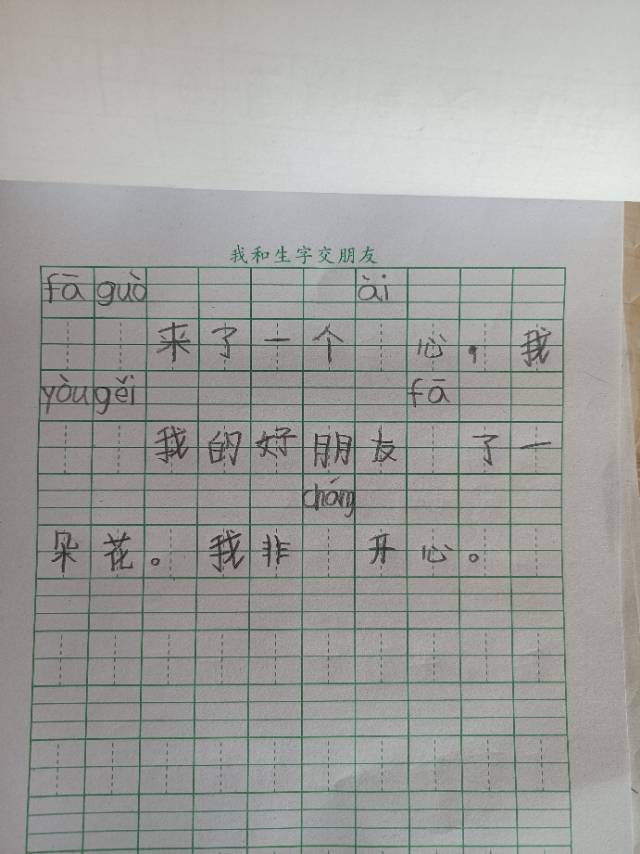 我和生字交朋友
fā guò ài
来了一个 心，我
yòu gěi fā
我的好朋友 了一
cháng
朵花。我非 开心。